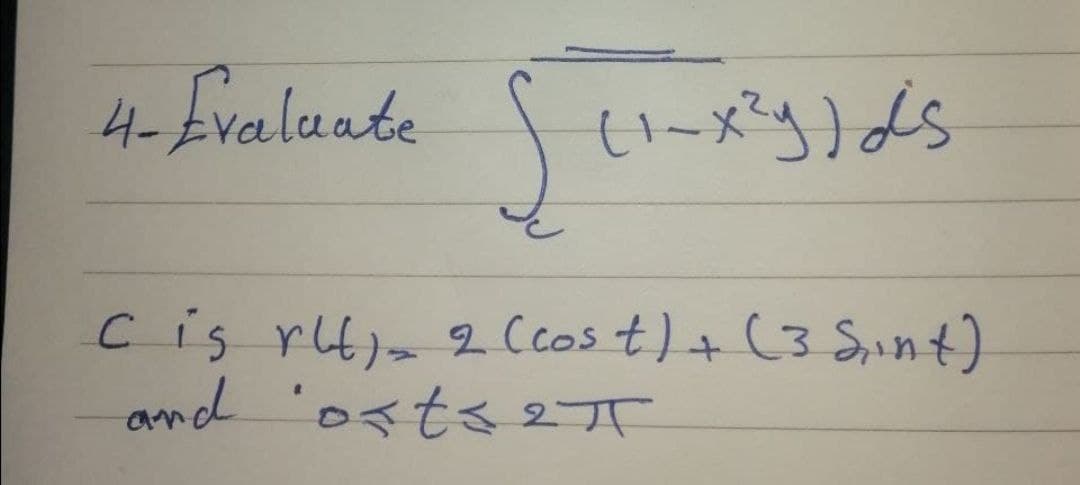 4- Evaluate ∫c (1-x²y) ds
C is r(t) = 2 (cos t) + (3 Sint)
and 0 ≤ t ≤ 2π